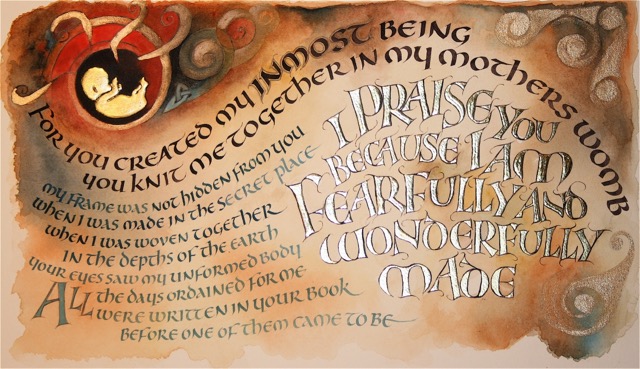 For you created my INMOST BEING
you knit me together in my mothers womb
I PRAISE YOU
BECAUSE I AM
FEARFULLY AND
WONDERFULLY
MADE
my frame was not hidden from you
when I was made in the secret place
when I was woven together
in the depths of the earth
your eyes saw my unformed body
All the days ordained for me
were written in your book
before one of them came to be